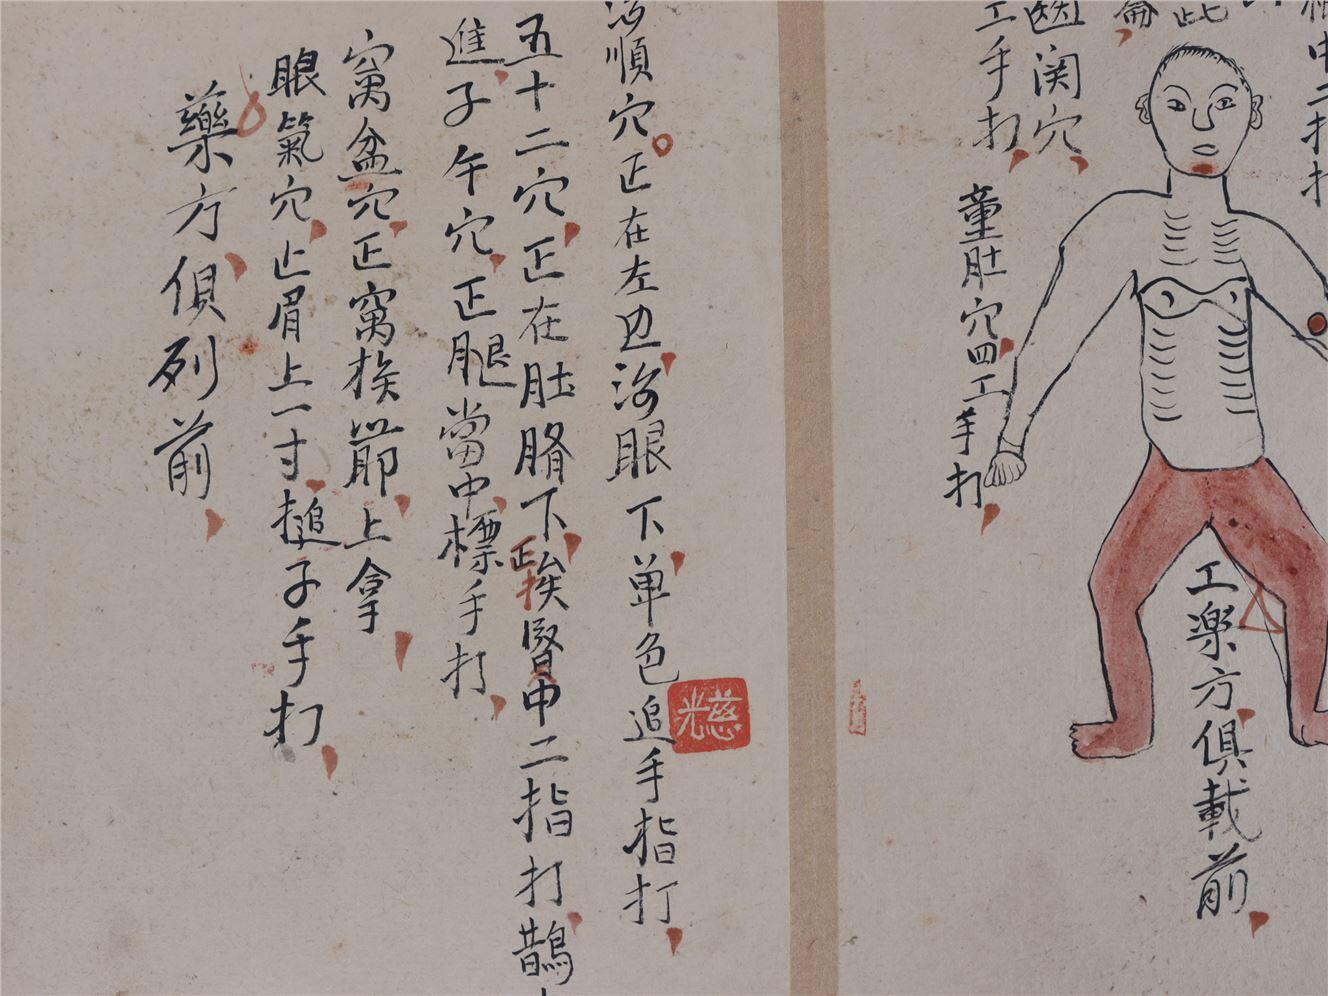 中二打打
此
侖
齒関穴
工手打
童肚穴四工手打
工楽方俱載前
順穴正在左边海眼下单色追手指打
慈光
五十二穴正在肚臍下挨腎中二指打鵲
正
進子午穴正腿當中標手打
窩盆穴正窩挨節上拿
眼氣穴止眉上一寸搥子手打
藥方俱列前